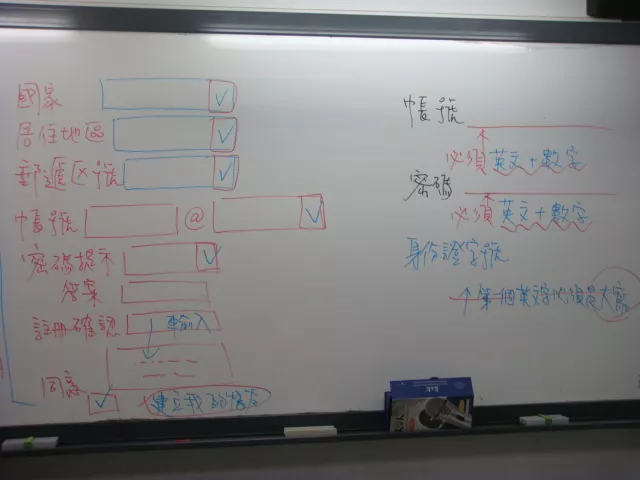 國家
居住地區
郵遞区號
帳號 @
密碼提示
答案
註冊確認 輸入
同意
建立我的帳戶
帳號
必須英文+數字
密碼
必須英文+數字
身份證字號
↑第一個英文字必須是大寫